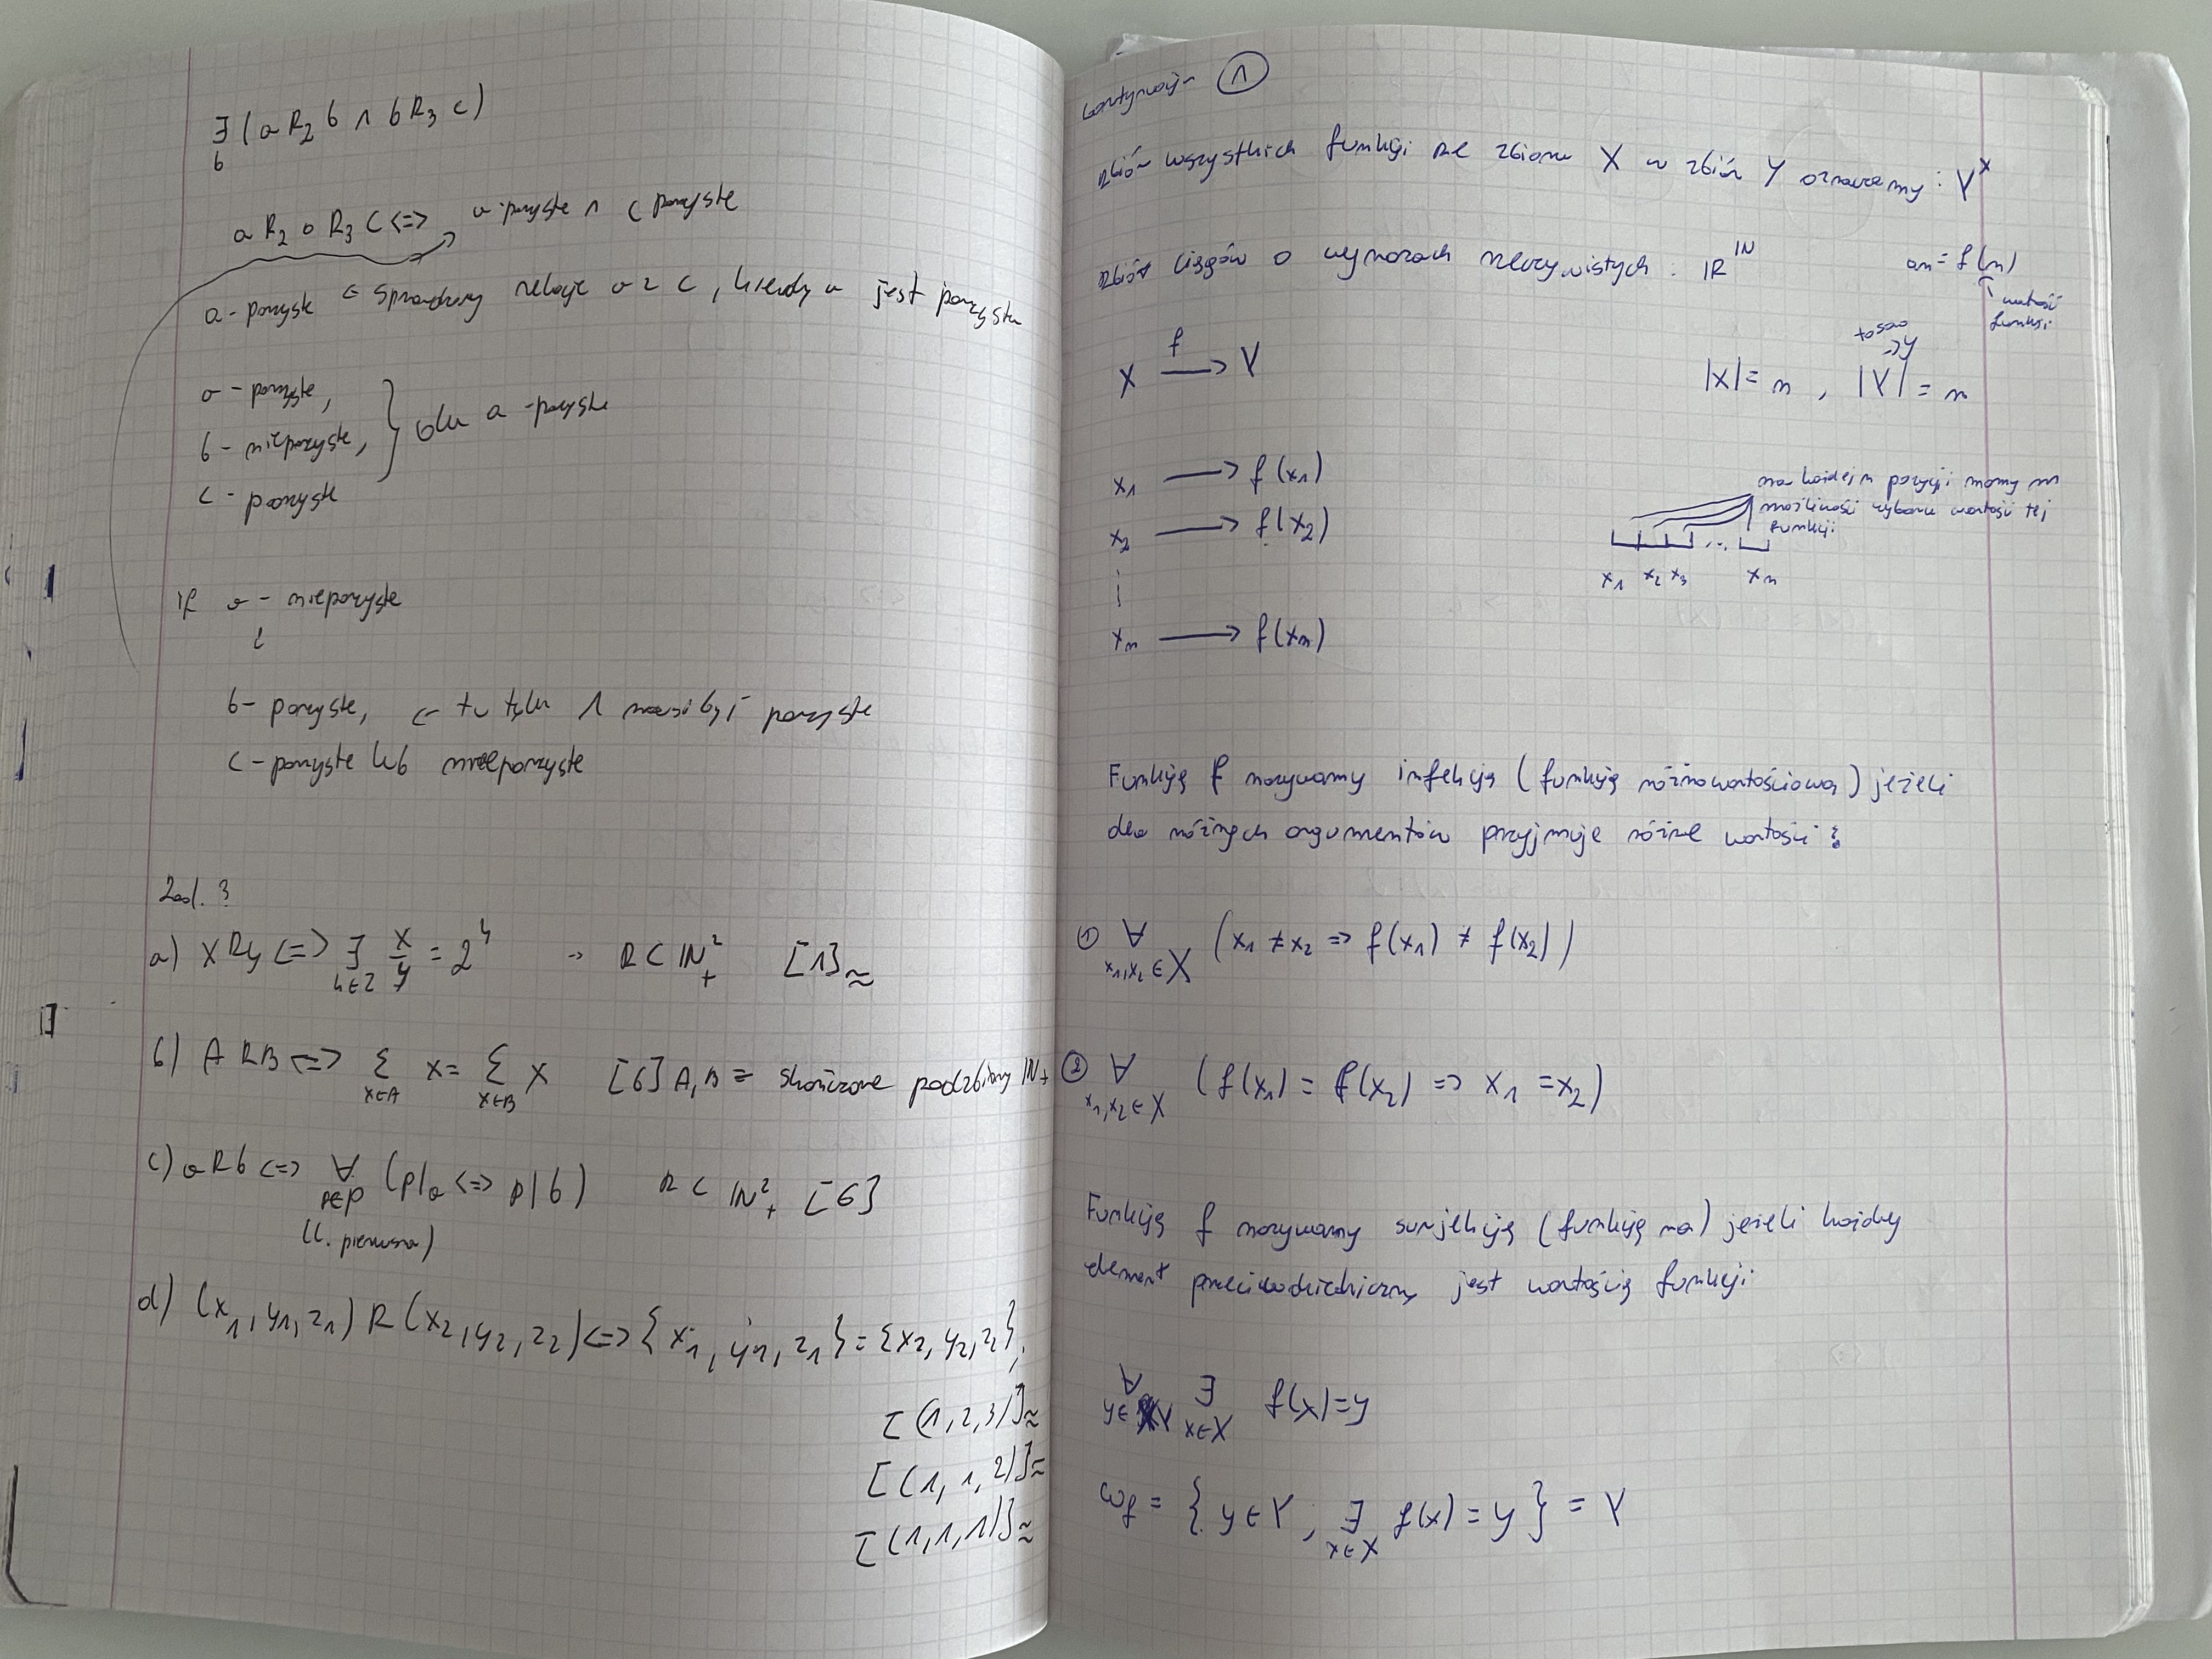 ∃_b (a R₂ b ∧ b R₃ c)
a R₂ ∘ R₃ c <=> nieparzyste ∧ c parzyste
a - parzyste c sprawdzamy relację a z c, kiedy a jest parzyste
a - parzyste,
b - nieparzyste, } dla a - parzyste
c - parzyste
a - nieparzyste
b - parzyste, musi być parzyste
c - parzyste lub nieparzyste
Zad. 3
a) x R y <=> ∃_{k∈Z} x/y = 2^k R ⊂ ℕ₊² [1]≈
b) A R B <=> Σ_{x∈A} x = Σ_{x∈B} x [6] A, B = skończone podzbiory ℕ₊
c) a R b <=> ∀_{p∈P} (p|a <=> p|b) R ⊂ ℕ₊² [6]
(l. pierwsza)
d) (x₁, y₁, z₁) R (x₂, y₂, z₂) <=> {x₁, y₁, z₁} = {x₂, y₂, z₂};
[(1, 2, 3)]≈
[(1, 1, 2)]≈
[(1, 1, 1)]≈
①
zbiór wszystkich funkcji ze zbioru X w zbiór Y oznaczamy: Y^X
zbiór ciągów o wyrazach rzeczywistych: ℝ^ℕ an = f(n)
wartość funkcji
X —f→ Y |X| = n, |Y| = m
x₁ → f(x₁)
x₂ → f(x₂)
⋮
xn → f(xn)
x₁ x₂ x₃ ... xn
na każdej pozycji mamy m
możliwości wyboru wartości tej
funkcji
Funkcję f nazywamy iniekcją (funkcją różnowartościową) jeżeli
dla różnych argumentów przyjmuje różne wartości:
① ∀_{x₁,x₂∈X} (x₁ ≠ x₂ => f(x₁) ≠ f(x₂))
② ∀_{x₁,x₂∈X} (f(x₁) = f(x₂) => x₁ = x₂)
Funkcję f nazywamy surjekcją (funkcją na) jeżeli każdy
element przeciwdziedziny jest wartością funkcji
∀_{y∈Y} ∃_{x∈X} f(x) = y
= {y∈Y; ∃_{x∈X} f(x) = y} = Y